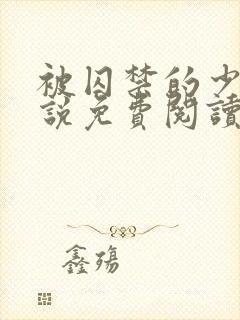 被囚禁的少
說免費閱讀
鑫殤